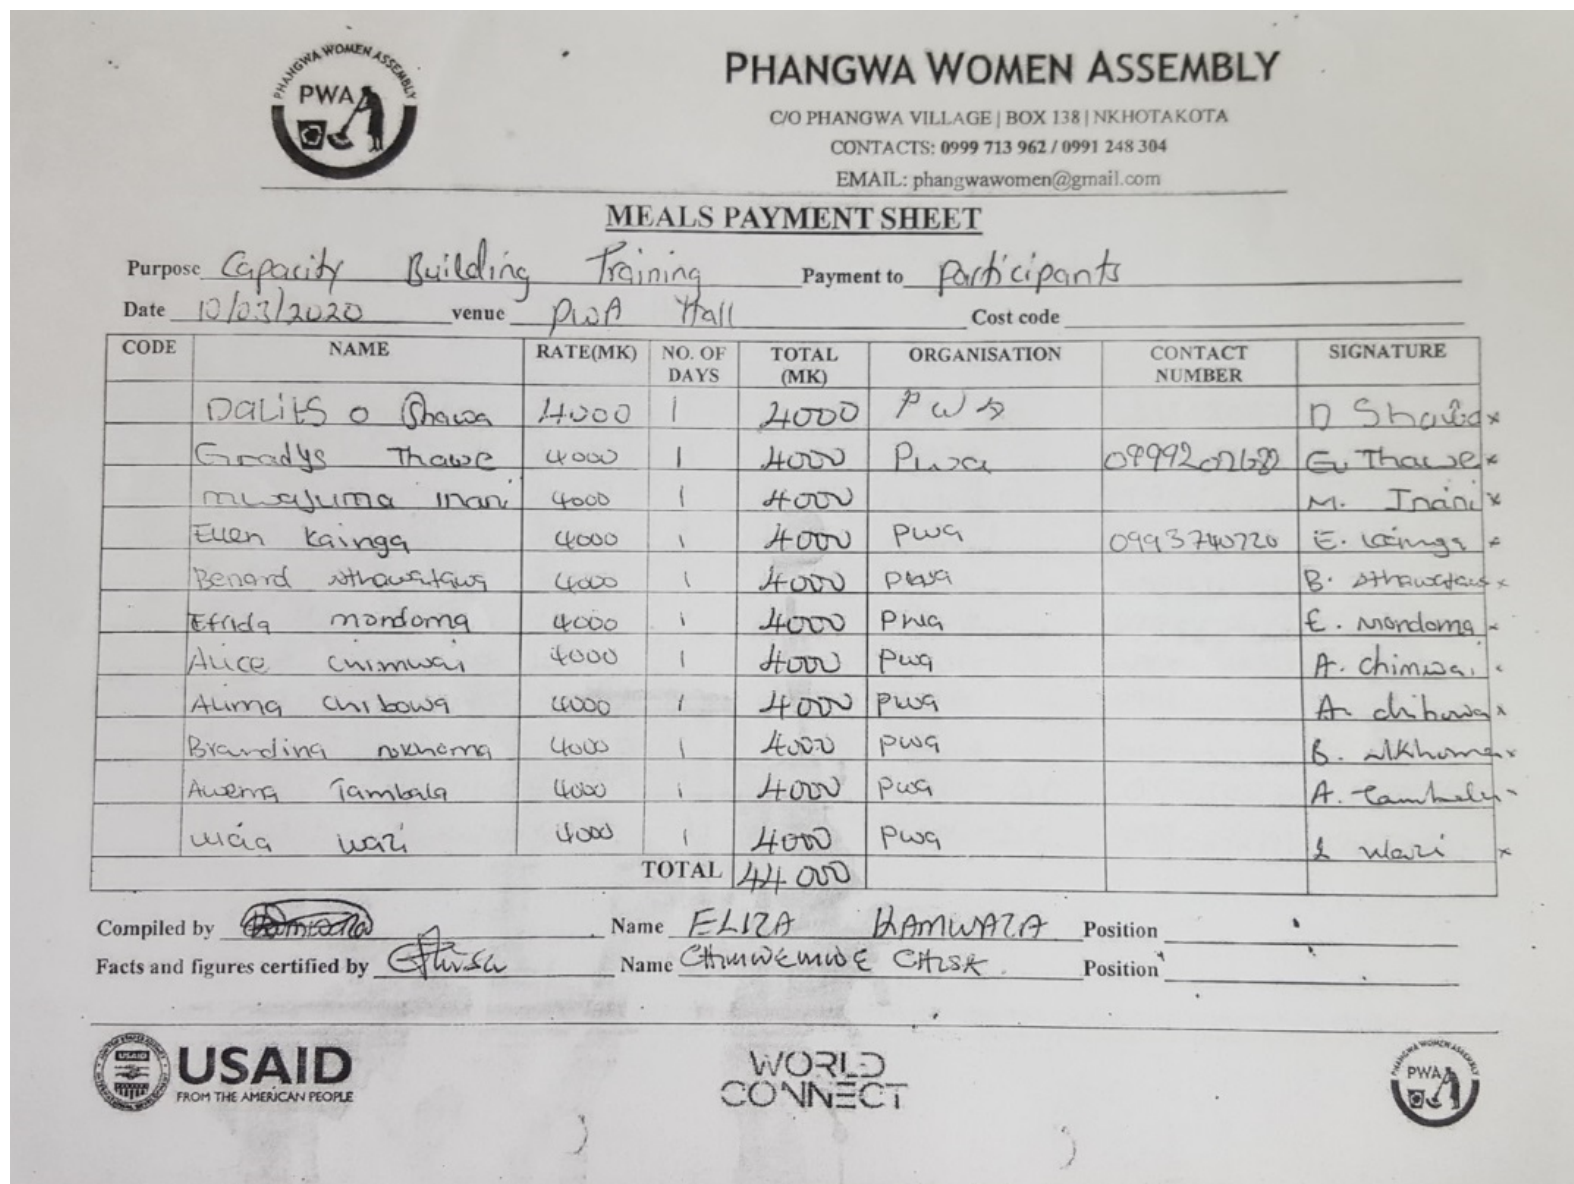 PHANGWA WOMEN ASSEMBLY
PWA
PHANGWA WOMEN ASSEMBLY
C/O PHANGWA VILLAGE | BOX 138 | NKHOTAKOTA
CONTACTS: 0999 713 962 / 0991 248 304
EMAIL: phangwawomen@gmail.com
MEALS PAYMENT SHEET
Purpose Capacity Building Training Payment to participants
Date 10/03/2020 venue PWA Hall Cost code
CODE NAME RATE(MK) NO. OF DAYS TOTAL (MK) ORGANISATION CONTACT NUMBER SIGNATURE
Dalitso Shawa 4000 1 4000 PWA D Shawa x
Gradys Thawe 4000 1 4000 Pwa G. Thawe x
mwajuma Inani 4000 1 4000 M. Inani x
Ellen Kainga 4000 1 4000 pwa 0993740720 E. Kainga x
Benard 4000 1 4000 pwa B. x
Efrida mondoma 4000 1 4000 pwa E. mondoma x
Alice chimwai 4000 1 4000 pwa A. chimwai
Alima chibowa 4000 1 4000 pwa A. chibowa x
Branding nkhoma 4000 1 4000 pwa B. Nkhoma x
Awema Tambala 4000 1 4000 pwa A. Tambala
wazi 4000 1 4000 pwa wazi x
TOTAL 44 000
Compiled by Name ELIZA KAMWAZA Position
Facts and figures certified by Name CHIMWEMWE Position
USAID
USAID
FROM THE AMERICAN PEOPLE
WORLD
CONNECT
PHANGWA WOMEN ASSEMBLY
PWA